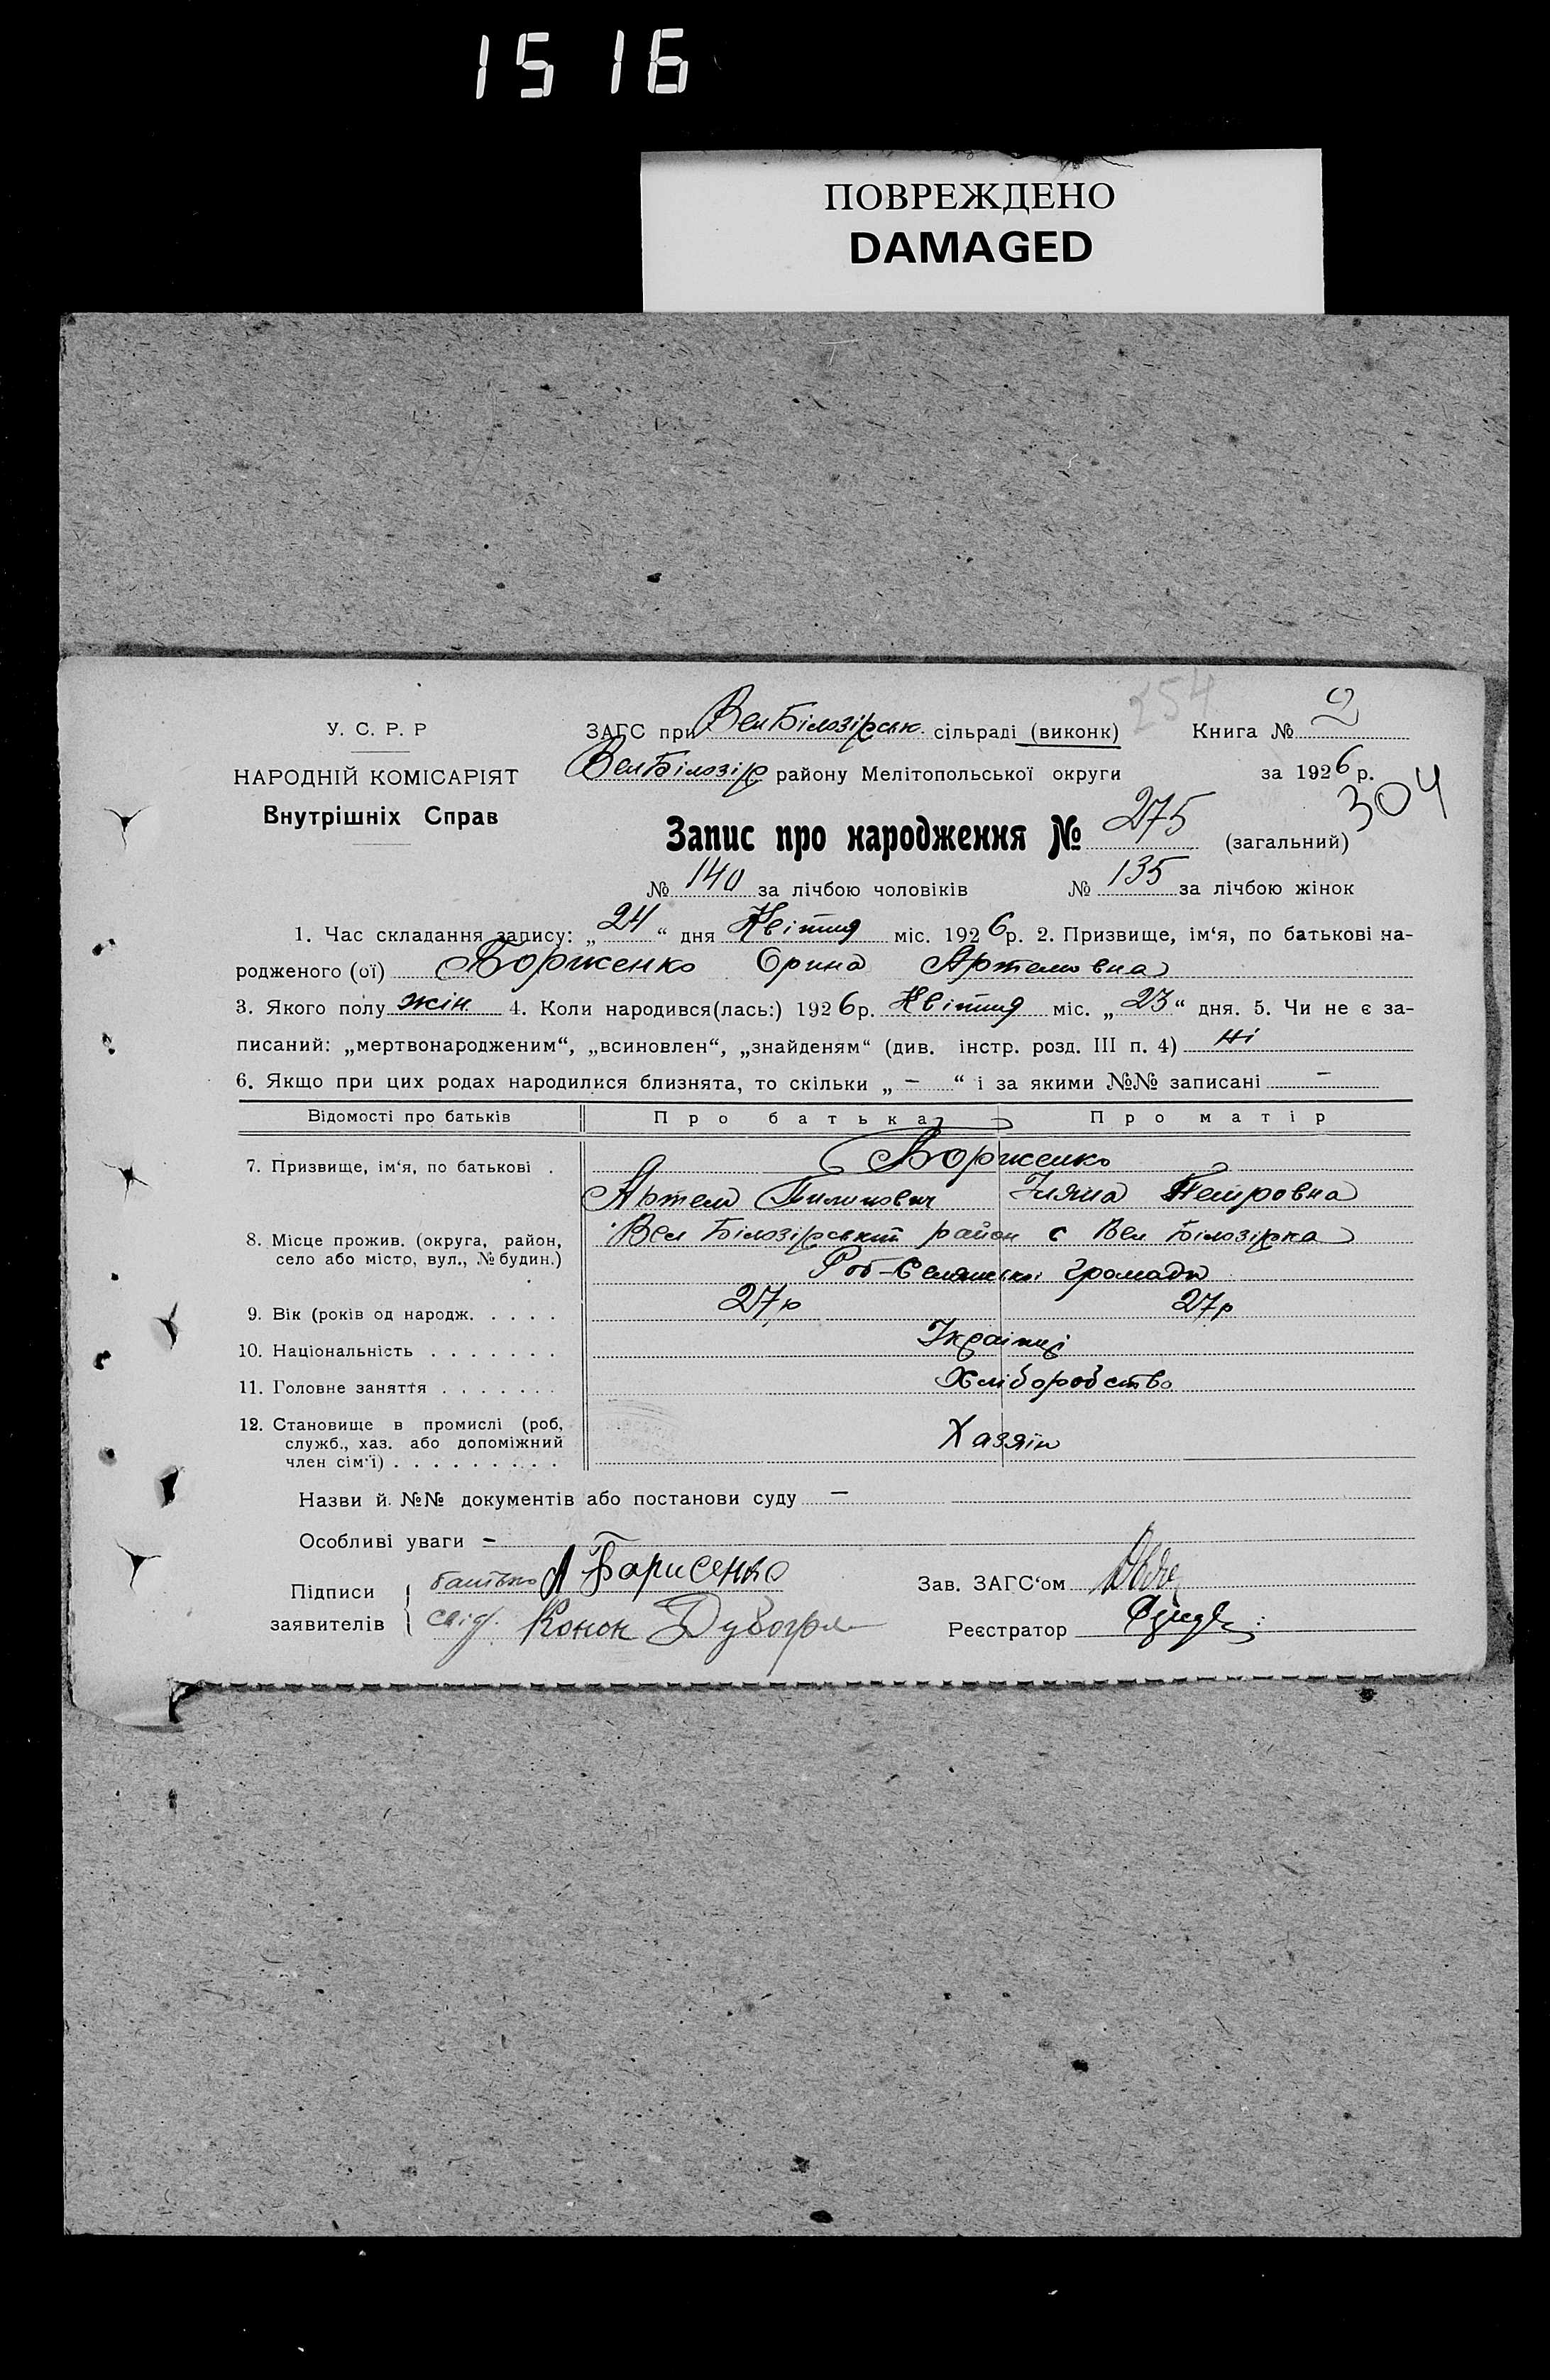 1516
ПОВРЕЖДЕНО
DAMAGED
254
У. С. Р. Р
ЗАГС при ВелБілозірськ. сільраді (виконк) Книга № 2
НАРОДНІЙ КОМІСАРІЯТ
ВелБілозір району Мелітопольської округи за 1926 р.
Внутрішніх Справ
304
Запис про народження № 275 (загальний)
№ 140 за лічбою чоловіків № 135 за лічбою жінок
1. Час складання запису: „24“ дня Квітня міс. 1926 р. 2. Призвище, ім‘я, по батькові на-
родженого (ої) Борженко Орина Артемовна
3. Якого полу жін. 4. Коли народився(лась:) 1926 р. Квітня міс. „23“ дня. 5. Чи не є за-
писаний: „мертвонародженим“, „всиновлен“, „знайденям“ (див. інстр. розд. III п. 4) Ні
6. Якщо при цих родах народилися близнята, то скільки „ – “ і за якими №№ записані –
Відомості про батьків Про батька Про матір
7. Призвище, ім‘я, по батькові . Борженко
Артем Пилипович Уляна Петровна
8. Місце прожив. (округа, район, Вел Білозірський район с Вел Білозірка
село або місто, вул., № будин.)
Роб-Селянської громади
9. Вік (років од народж. . . . . 27 р 27 р
10. Національність . . . . . . . Українці
11. Головне заняття . . . . . . . Хліборобство
12. Становище в промислі (роб,
служб., хаз. або допоміжний Хазяїн
член сім‘ї) . . . . . . . . .
Назви й. №№ документів або постанови суду –
Особливі уваги –
Підписи батько А Борисенко Зав. ЗАГС‘ом
заявителів свід. Конон Реєстратор